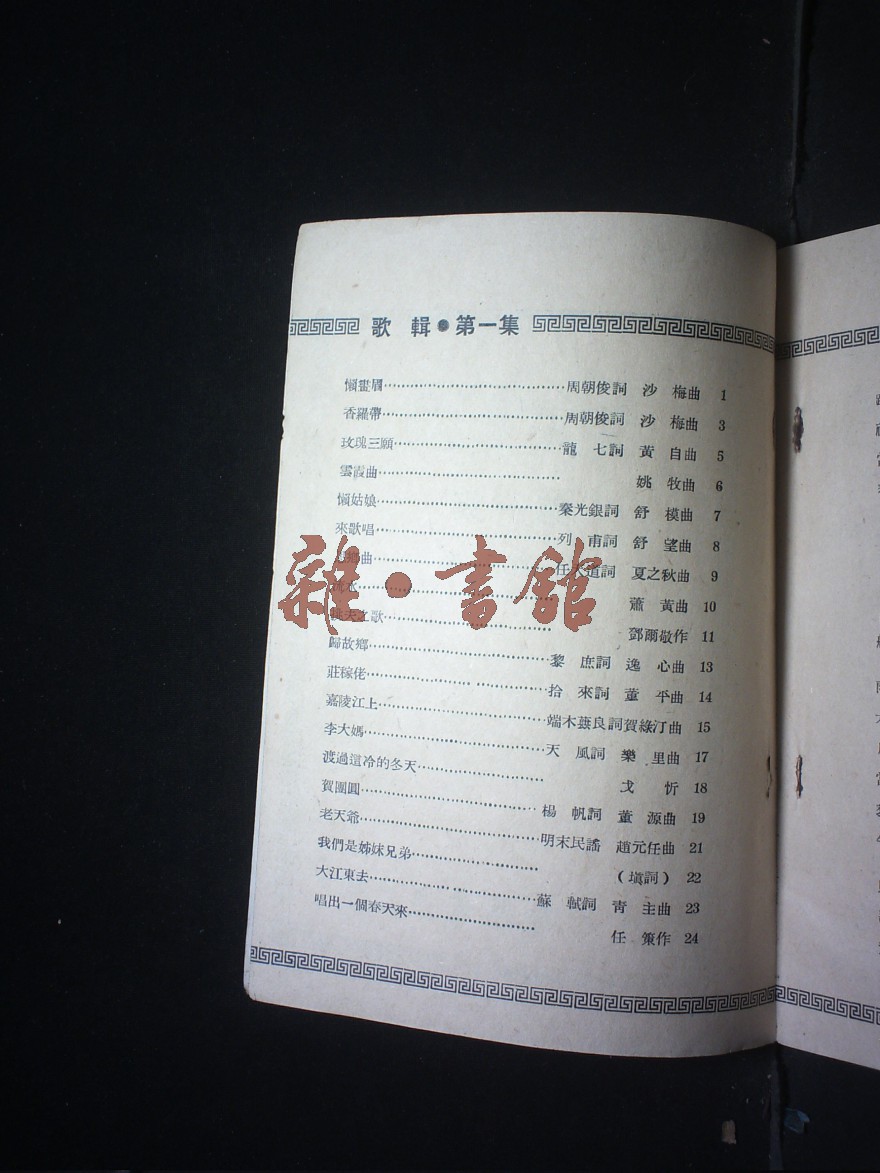 歌 輯●第一集
懶畫眉……周朝俊詞 沙 梅曲 1
香羅帶……周朝俊詞 沙 梅曲 3
玫瑰三願……龍 七詞 黃 自曲 5
雲霞曲……姚 牧曲 6
懶姑娘……秦光銀詞 舒 模曲 7
來歌唱……列 甫詞 舒 望曲 8
曲……任大道詞 夏之秋曲 9
……蕭 黃曲 10
夫之歌……鄧爾敬作 11
歸故鄉……黎 庶詞 逸 心曲 13
莊稼佬……拾 來詞 董 平曲 14
嘉陵江上……端木蕻良詞賀綠汀曲 15
李大媽……天 風詞 樂 里曲 17
渡過這冷的冬天……戈 忻 18
賀團圓……楊 帆詞 董 源曲 19
老天爺……明末民謠 趙元任曲 21
我們是姊妹兄弟……（塡詞）22
大江東去……蘇 軾詞 青 主曲 23
唱出一個春天來……任 策作 24
雜·書館